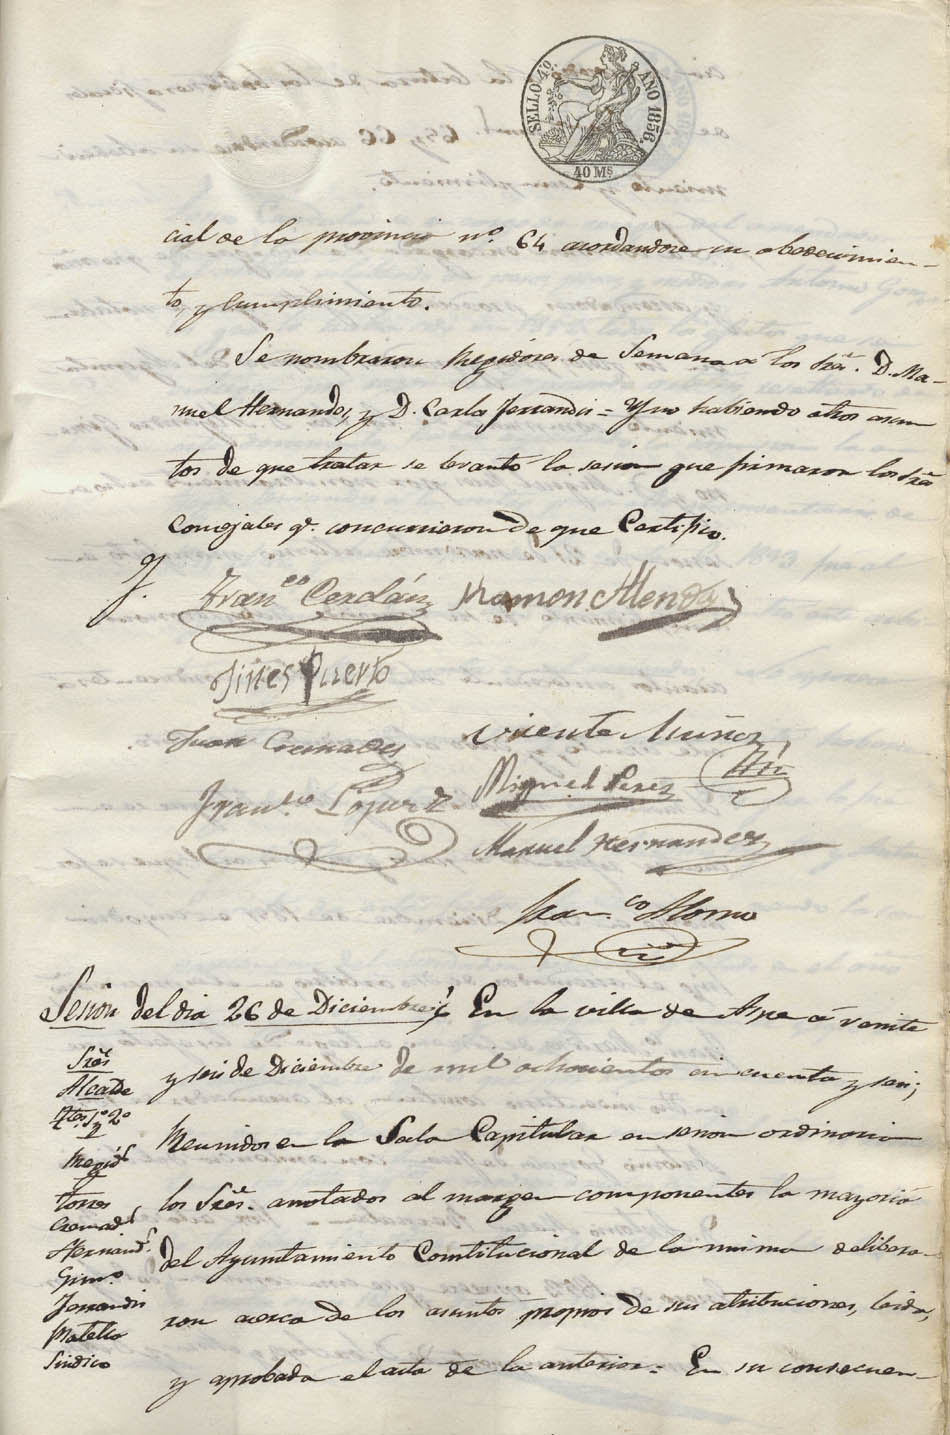 SELLO 4º. AÑO 1856.
40 Ms
cial de la provincia nº. 64 acordandose su obedecimien-
to, y cumplimiento.
Se nombraron Regidores de Semana a los Sres. D. Ma-
nuel Hernandez, y D. Carlos Ferrandis = Y no habiendo otros asun
tos de que tratar se levantó la sesion que firmaron los Sres
Concejales qe. concurrieron de que Certifico.
Franco Cerdán Ramon Alenda
Jines Puerto
Juan Cremades Vicente Muñoz
Franco Lopez Miguel Perez
Manuel Hernandez
Franco Alonso
Sesion del dia 26 de Diciembre En la villa de Aspe á veinte
y seis de Diciembre de mil ochocientos cincuenta y seis;
Reunidos en la Sala Capitular en sesion ordinaria
los Sres. anotados al margen componentes la mayoria
del Ayuntamiento Constitucional de la misma delibera-
ron acerca de los asuntos propios de sus atribuciones, leida,
y aprobada el acta de la anterior = En su consecuen-
Sres
Alcalde
Ttes. 1º y 2º
Regids
Torres
Cremads
Hernands
Gimo
Ferrandis
Botella
Sindico